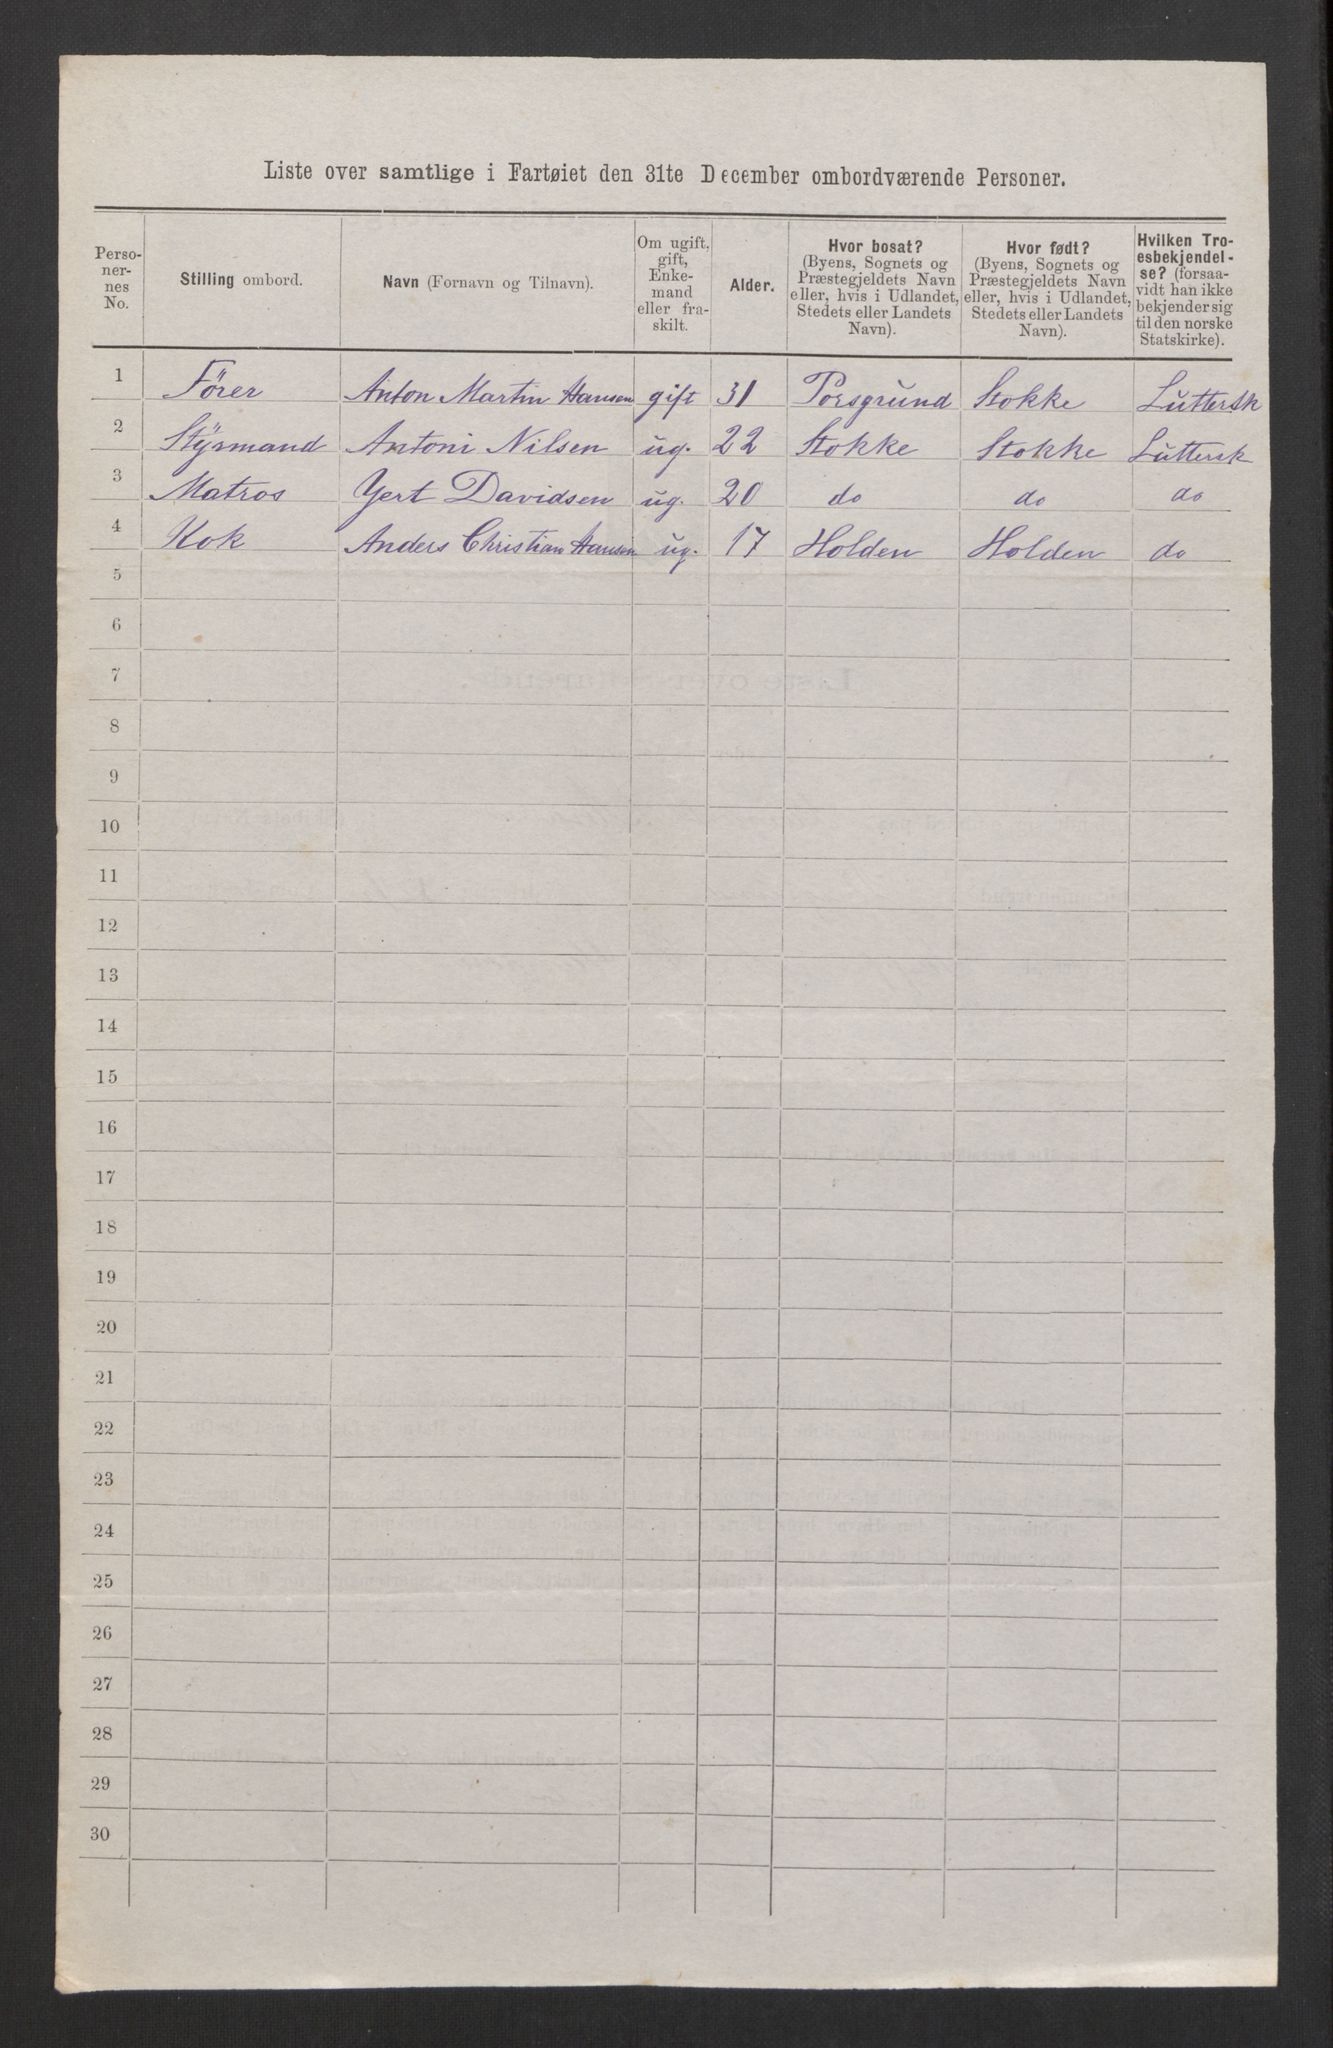 Liste over samtlige i Fartøiet den 31te December ombordværende Personer.
Perso-
ner-
nes
No.
Stilling ombord.
Navn (Fornavn og Tilnavn).
Om ugift,
gift,
Enke-
mand
eller fra-
skilt.
Alder.
Hvor bosat?
(Byens, Sognets og
Præstegjeldets Navn
eller, hvis i Udlandet,
Stedets eller Landets
Navn).
Hvor født?
(Byens, Sognets og
Præstegjeldets Navn
eller, hvis i Udlandet,
Stedets eller Landets
Navn).
Hvilken Tro-
esbekjendel-
se? (forsaa-
vidt han ikke
bekjender sig
til den norske
Statskirke).
1 Förer Anton Martin Hansen gift 31 Porsgrund Stokke Luttersk
2 Styrmand Antoni Nilsen ug. 22 Stokke Stokke Luttersk
3 Matros Gert Davidsen ug. 20 do do do
4 Kok Anders Christian Hansen ug. 17 Holden Holden do
5
6
7
8
9
10
11
12
13
14
15
16
17
18
19
20
21
22
23
24
25
26
27
28
29
30